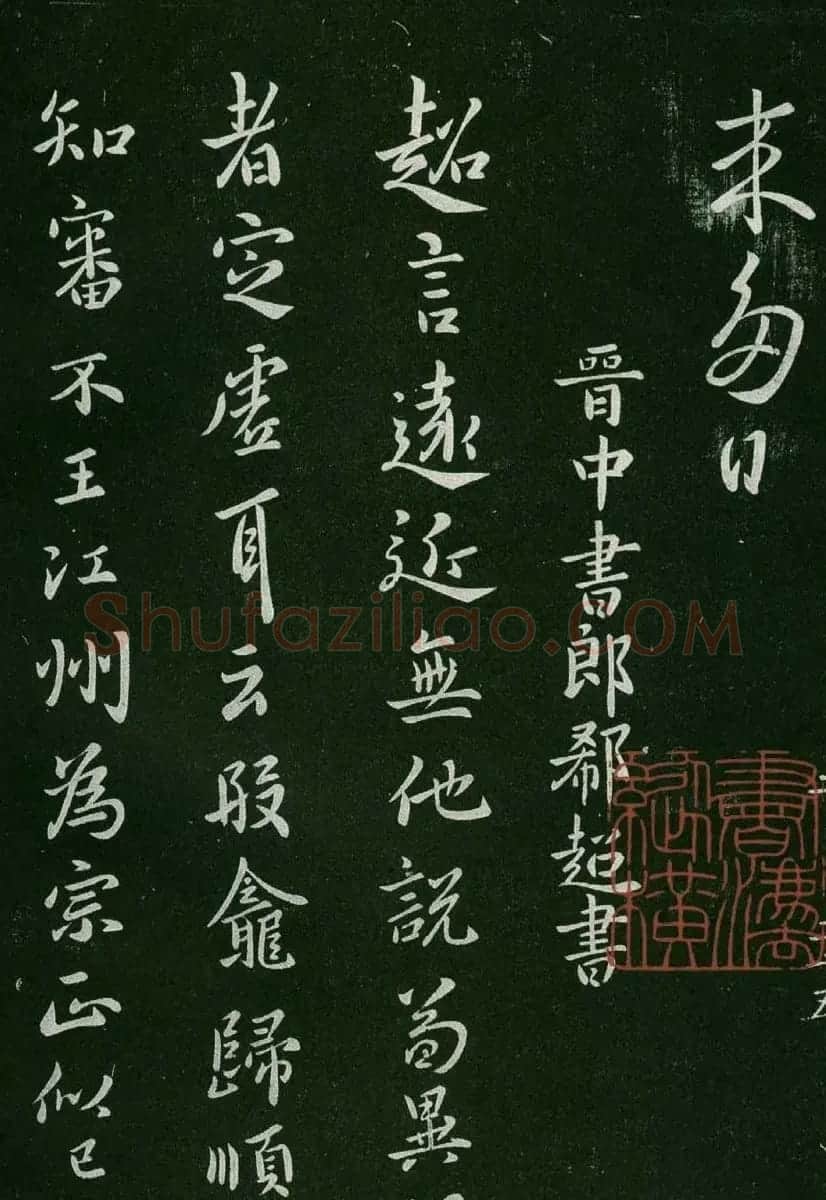 来匆日
晉中書郎郗超書
超言遠近無他說苟異
者定虛耳云般龕歸順
知審不王江州為宗正似已
Shufaziliao.COM
書法縱橫